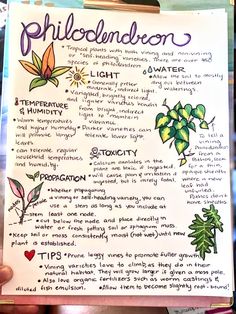 philodendron
• Tropical plants with both vining and non-vining
or self-heading varieties. There are over 450
species of philodendrons.
LIGHT
• Generally prefer
moderate, indirect light.
• Variegated, brightly colored,
and lighter varieties benefit
from bright, indirect
light to maintain
their coloring.
• Darker varieties can
tolerate lower light.
WATER
• Allow the soil to mostly
dry out between
waterings.
TEMPERATURE
& HUMIDITY
• Warm temperatures
and higher humidity
can tolerate regular
household temperatures
and humidity.
TOXICITY
• Calcium oxalates in the
plant are toxic if ingested
will cause irritation if
ingested, but is rarely fatal.
To tell a
vining
philodendron
from a
Pothos,
where a new
leaf has
unfurled.
Pothos do not
have sheaths.
PROPAGATION
• Whether propagating
a vining or self-heading variety, you can
use a stem as long as you include at
least one node.
• Cut below the node and place directly in
water or fresh potting soil or sphagnum moss.
• Keep soil or moss consistently moist (not wet) until new
plant is established.
TIPS
• Prune leggy vines to promote fuller growth.
• Vining varieties love to climb, as they do in their
natural habitat. They will grow larger if given a moss pole.
• Also love organic fertilizers such as worm castings or
diluted fish emulsion. • Allow them to become slightly root-bound!